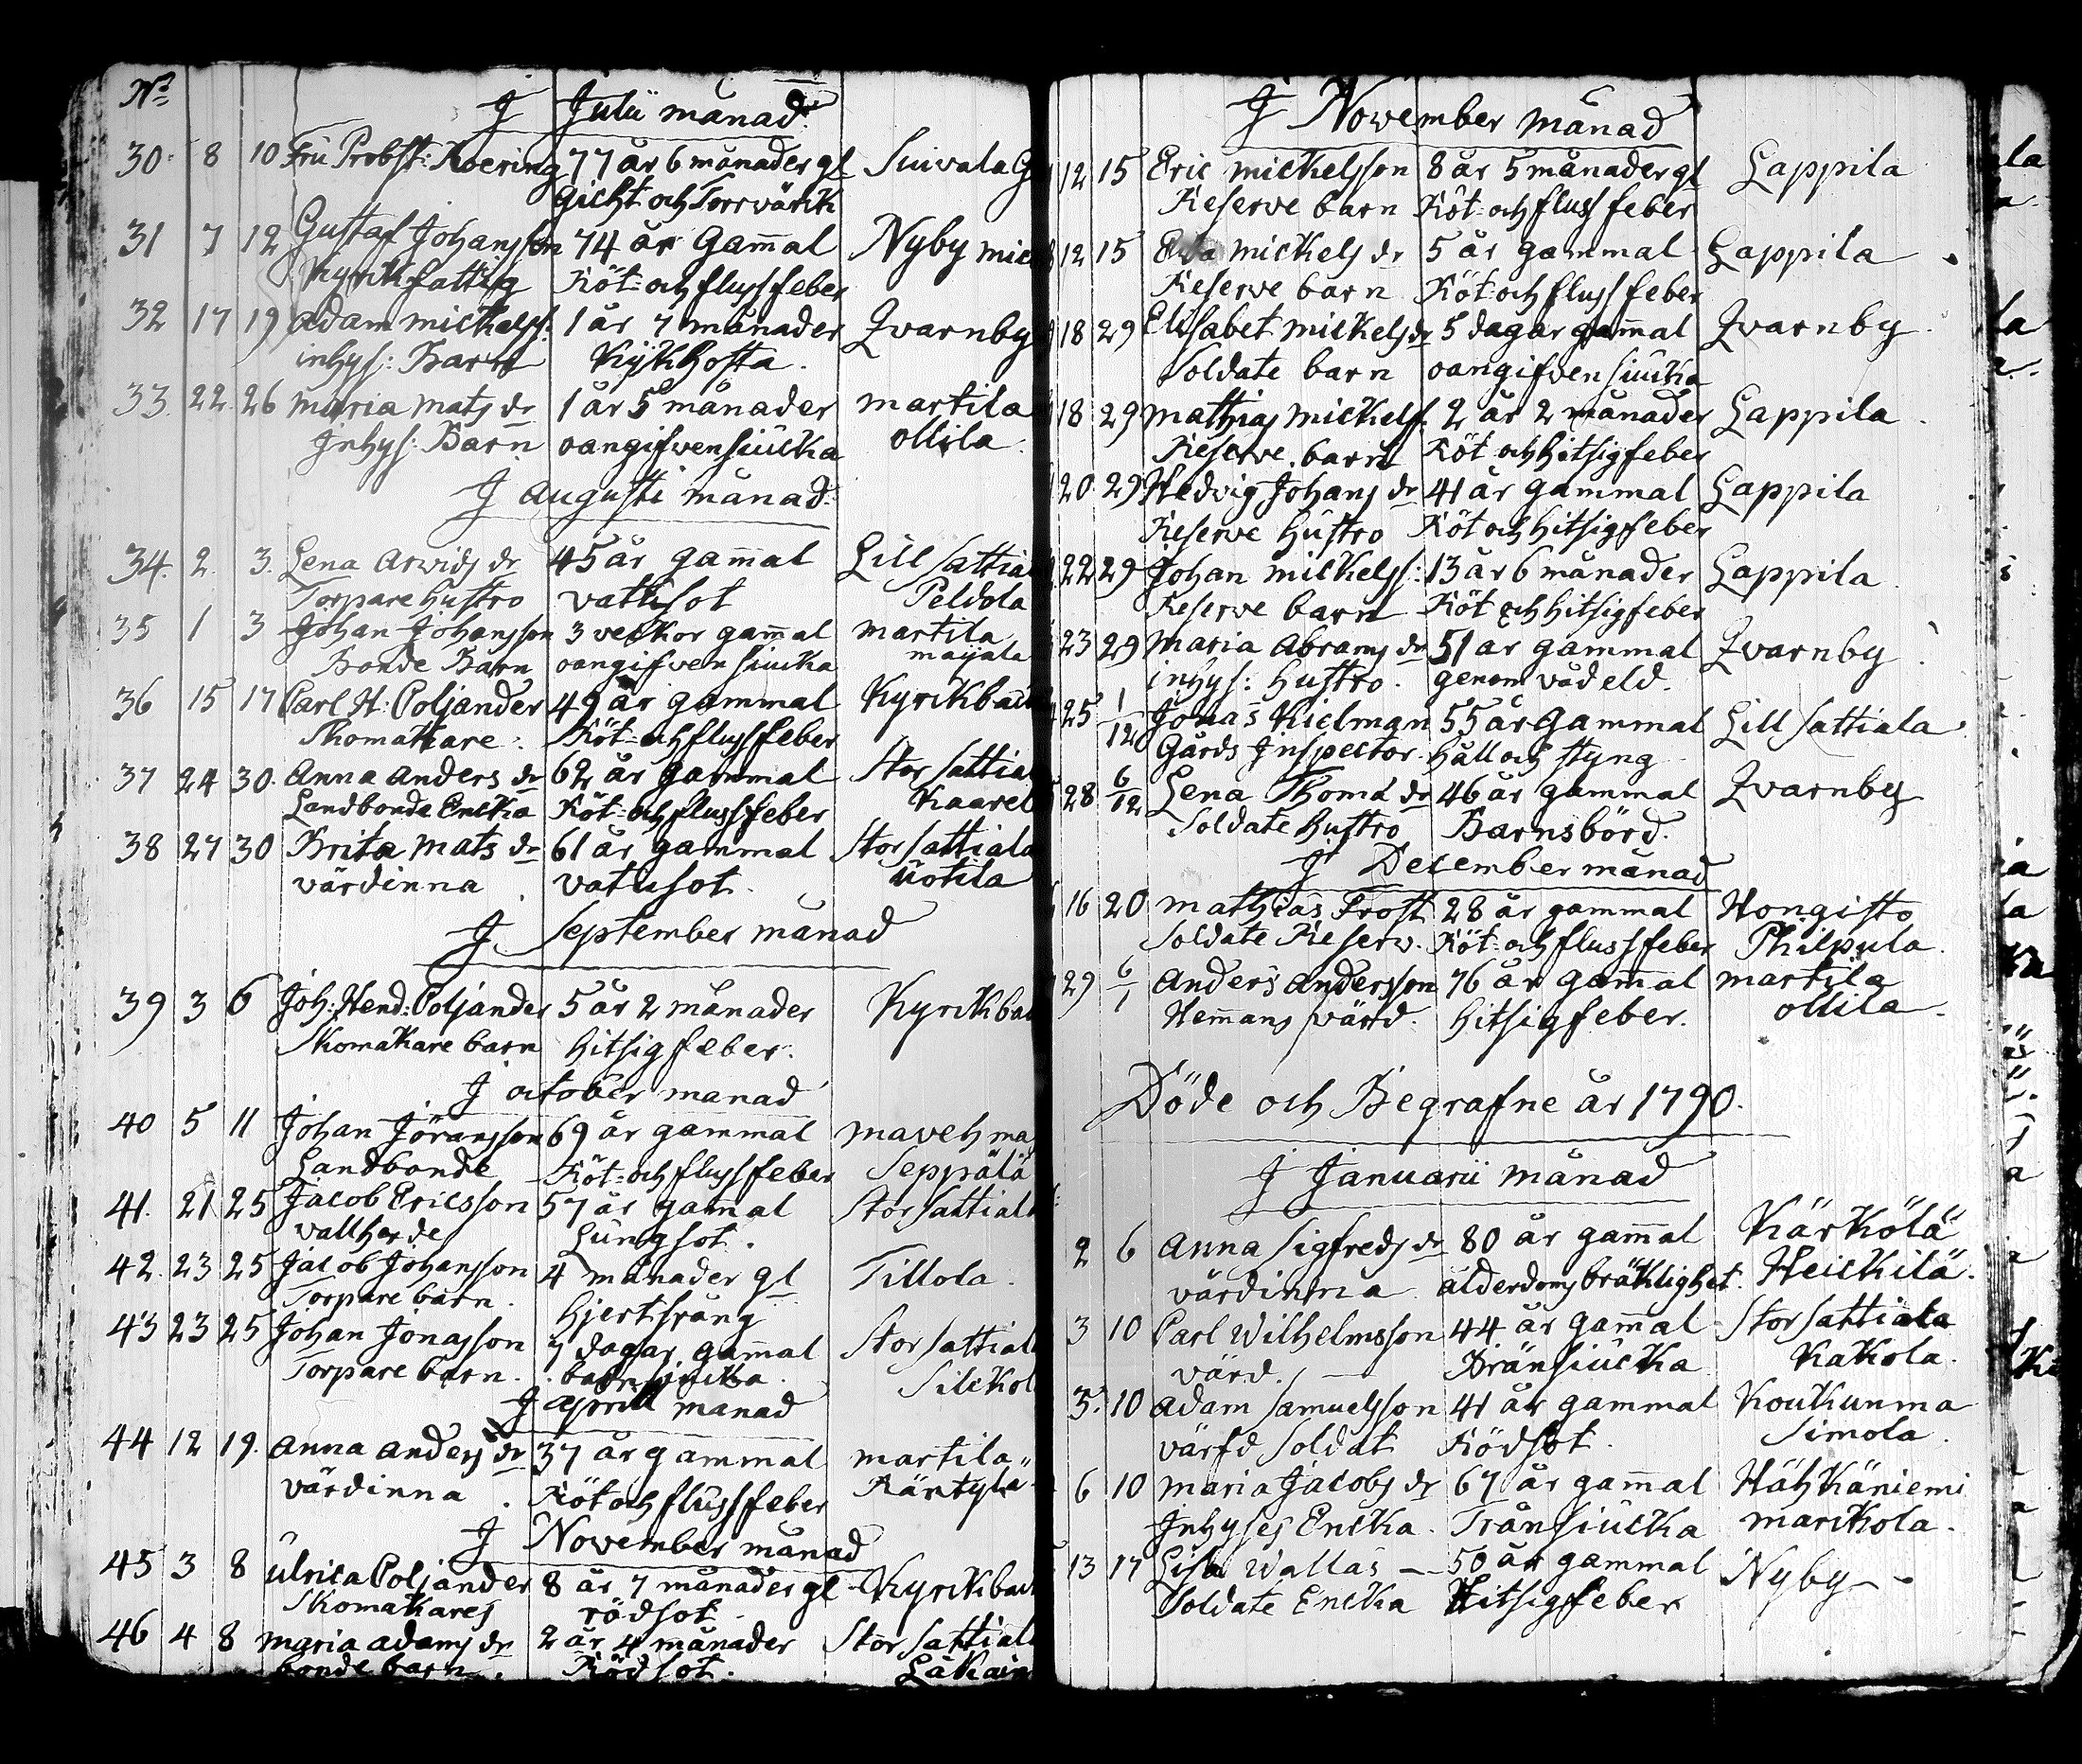 No
J Julii månad
30. 8 10 Fru Probst: Roering 77 år 6 månader gl Suivala G
Gicht och Torrvärck
31 7 12 Gustaf Johansson 74 år Gam̄al Nyby mic
Kyrckfattig Röt- och flussfeber
32 17 19 Adam mickelss: 1 år 7 månader Qvarnby
inhys: Barn Kÿkhosta.
33. 22. 26 maria mats dr 1 år 5 månader martila
Jnhys: Barn oangifven siucka ollila.
J Augusti månad
34. 2. 3. Lena Arvids dr 45 år gam̄al Lill Sattia
Torpare hustro vattusot Peldola
35 1 3 Johan Johansson 3 veckor gam̄al martila
Bonde Barn oangifven siucka maijala
36 15 17 Carl H: Poljander 49 år gammal Kyrckba
Skomakare. Röt- och flussfeber
37 24 30. Anna Anders dr 62 år gammal Stor Sattia
Landbonde Encka Röt- och flussfeber Kaarel
38 27 30 Brita Mats dr 61 år gammal Stor Sattiala
värdinna. vatusot. Uotila
J September månad
39 3 6 Joh: Hend: Poljander 5 år 2 månader Kyrckba
Skomakare barn hitsigfeber.
J october manad
40 5 11 Johan Jöransson 69 år gammal maveh ma
Landbonde Röt- och flussfeber Seppälä
41. 21 25 Jacob Ericsson 57 år gam̄al Stor Sattial
vallherde Lungsot.
42. 23 25 Jacob Johansson 4 månader gl Tillola.
Torpare barn. hjertsrång
43 23 25 Johan Jonasson 7 dagar gam̄al Stor Sattial
Torpare barn. barnsiucka. Silckol
J aprill manad
44 12 19. Anna Anders dr 37 år gammal martila
värdinna. Röt och flussfeber Räntylä
J November månad
45 3 8 Ulrica Poljander 8 år 7 månader gl Kyrckbac
Skomakares rödsot.
46 4 8 maria adams dr 2 år 4 månader Stor Sattial
bonde barn. Rödsot.
J November månad
12 15 Eric mickelsson 8 år 5 månader gl Lappila
Reserve barn Röt- och fluss feber
12 15 Eva mickels dr 5 år gammal Lappila
Reserve barn Röt- och fluss feber
18 29 Elisabet mickels dr 5 dagar gam̄al Qvarnby
Soldate barn oangifven siucka
18 29 mathias mickelss. 2 år 2 månader Lappila.
Reserve barn Röt och hitsigfeber
20. 29 Hedvig Johans dr 41 år gammal Lappila
Reserve hustro Röt och hitsigfeber
22 29 Johan mickelss: 13 år 6 månader Lappila
Reserve barn Röt och hitsigfeber
23 29 maria Abrams dr 51 ar gammal Qvarnby
inhys: hustro. genom vådeld.
25 1/12 Jonas Kielman 55 år gammal Lill Sattiala
Gårds Jnspector. håll och styng
28 6/12 Lena Thoma dr 46 år gammal Qvarnby
Soldate hustro Barnsbörd.
J December månad
16 20 mathias Frost 28 år gammal Hongisto
Soldate Reserv. Röt- och flussfeber Philpula.
29 6/1 Anders Andersson 76 år gam̄al martila
Hem̄ans värd. hitsigfeber. ollila.
Döde och Begrafne år 1790.
J Januarii månad
2 6 Anna Sigfreds dr 80 år gam̄al Kärkölä
värdinna ålderdoms bräcklighet. Heickilä.
3 10 Carl Wilhelmsson 44 år gam̄al Stor Sattiala
värd. Bränsiucka Kakola.
3. 10 Adam Samuelsson 41 år gammal Koukunma
värfd Soldat Rödsot. Simola.
6 10 maria Jacobs dr 67 år gam̄al Hähkäniemi
Jnhyses Encka. Trånsiucka marckola.
13 17 Lisa Wallas 50 år gammal Nyby
Soldate Encka Hitsigfeber